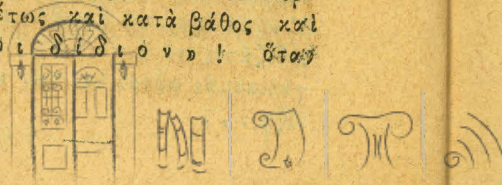 έτως καὶ κατὰ βάθος καὶ
ι δ ί δ ι ό ν » ! ὅταν